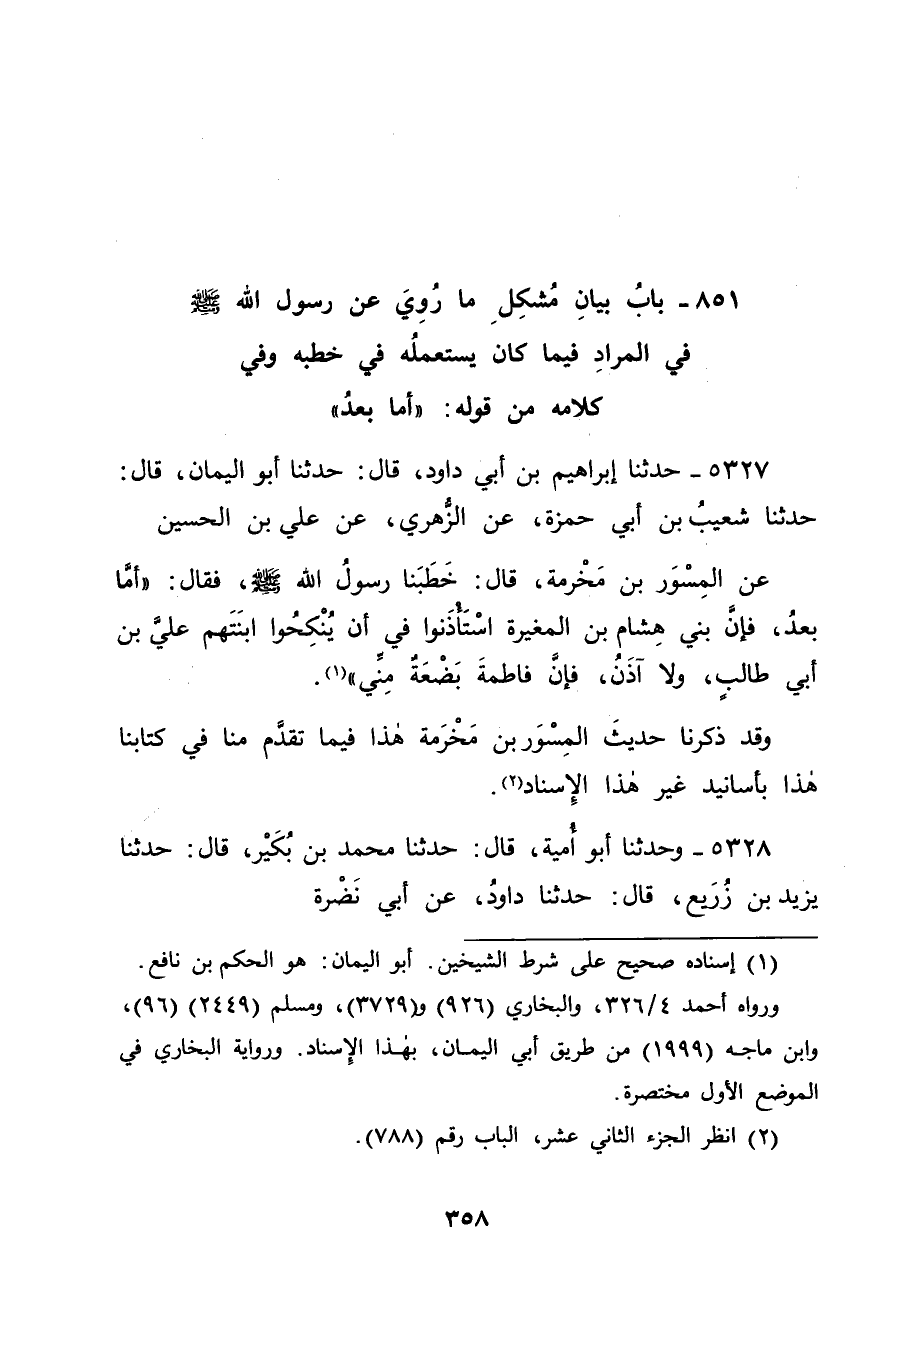 ٨٥١ ـ بابُ بيانِ مُشكِلِ ما رُوِيَ عن رسول الله ﷺ
في المرادِ فيما كان يستعملُه في خطبه وفي
كلامه من قوله: «أما بعدُ»
٥٣٢٧ ـ حدثنا إبراهيم بن أبي داود، قال: حدثنا أبو اليمان، قال:
حدثنا شعيبُ بن أبي حمزة، عن الزُّهري، عن علي بن الحسين
عن المِسْوَر بن مَخْرمة، قال: خَطَبَنا رسولُ الله ﷺ، فقال: «أمَّا
بعدُ، فإنَّ بني هِشام بن المغيرة اسْتَأْذَنوا في أن يُنْكِحُوا ابنَتَهم عليَّ بن
أبي طالبٍ، ولا آذَنُ، فإنَّ فاطمةَ بَضْعَةٌ مِنِّي»(١).
وقد ذكرنا حديثَ المِسْوَر بن مَخْرَمة هٰذا فيما تقدَّم منا في كتابنا
هٰذا بأسانيد غير هٰذا الإِسناد(٢).
٥٣٢٨ ـ وحدثنا أبو أُمية، قال: حدثنا محمد بن بُكَيْر، قال: حدثنا
يزيد بن زُرَيع، قال: حدثنا داودُ، عن أبي نَضْرة
(١) إسناده صحيح على شرط الشيخين. أبو اليمان: هو الحكم بن نافع.
ورواه أحمد ٣٢٦/٤، والبخاري (٩٢٦) و(٣٧٢٩)، ومسلم (٢٤٤٩) (٩٦)،
وابن ماجه (١٩٩٩) من طريق أبي اليمان، بهٰذا الإِسناد. ورواية البخاري في
الموضع الأول مختصرة.
(٢) انظر الجزء الثاني عشر، الباب رقم (٧٨٨).
٣٥٨